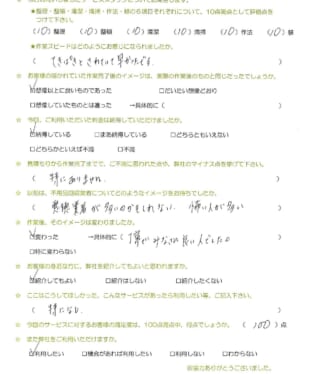 ★整理・整頓・清潔・清掃・作法・躾の6項目それぞれについて、10点満点として評価点を
つけて下さい。
(10) 整理 (10) 整頓 (10) 清潔 (10) 清掃 (10) 作法 (10) 躾
★作業スピードはどのようにお感じになられましたか。
☆ お客様の描かれていた作業完了後のイメージは、実際の作業後のものと同じだったでしょうか。
☑想像以上に良いものであった □だいたい想像どおり
□想像していたものとは違った →具体的に( )
☆ 今回、ご利用いただいた料金は納得していただけましたか。
☑納得している □まあ納得している □どちらともいえない
□どちらかといえば不満 □不満
☆ 見積もりから作業完了までで、ご不満に思われた点や、弊社のマイナス点を挙げて下さい。
( 特にありません。 )
☆ 以前は、不用品回収業者についてどのようなイメージをお持ちでしたか。
( 悪徳業者が多いのかもしれない。 怖い人が多い )
☆ 作業後、そのイメージは変わりましたか。
☑変わった →具体的に( 皆さん良い人でした。 )
□特に変わらない
☆ お客様の身近な方に、弊社を紹介してもよいと思われますか。
☑紹介してもよい □紹介はしない □紹介したくない
☆ ここはこうしてほしかった、こんなサービスがあったら利用したい等、ご記入下さい。
( 特になし )
☆ 今回のサービスに対するお客様の満足度は、100点満点中、何点でしょうか。 (100)点
☆ また弊社をご利用いただけますか。
☑利用したい □機会があれば利用したい □利用しない □わからない
ご協力ありがとうございました。